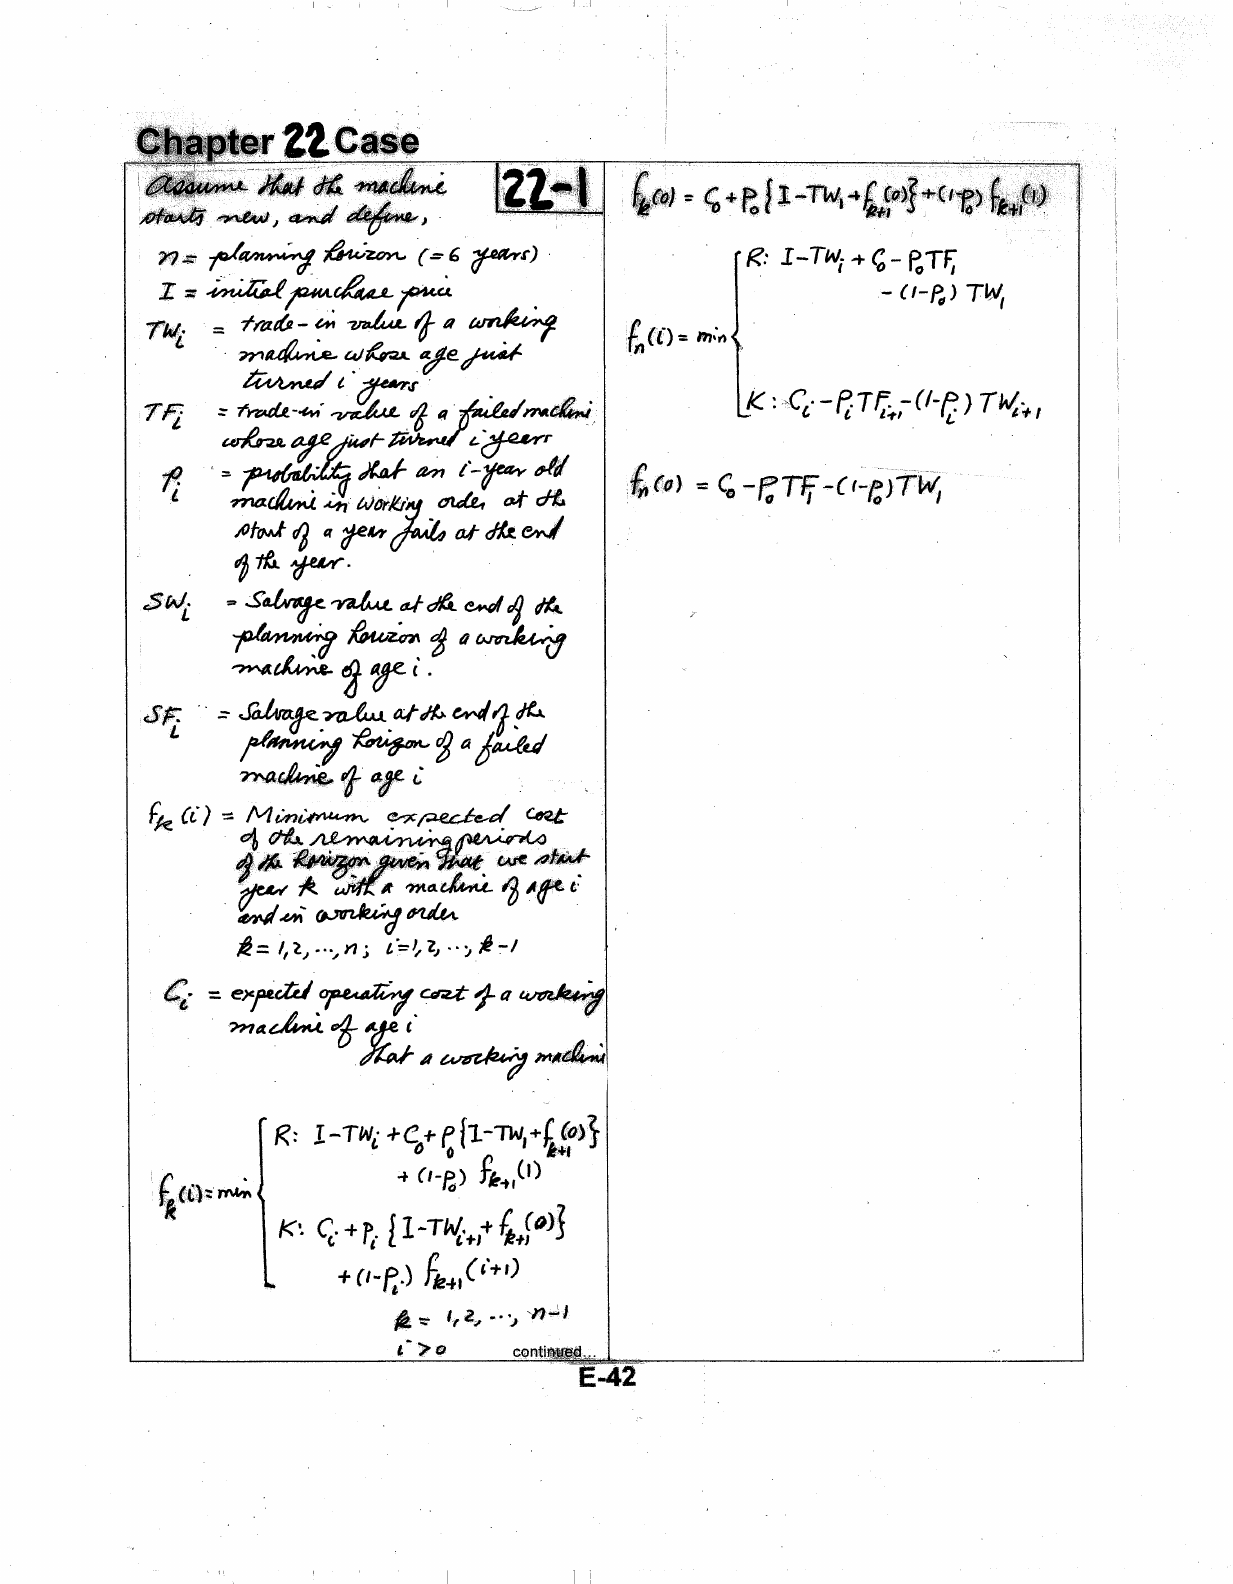 Chapter 22 Case
22-1
Assume that the machine
starts new, and define,
n = planning horizon (= 6 years)
I = initial purchase price
TWi = trade-in value of a working
machine whose age just
turned i years
TFi = trade-in value of a failed machine
whose age just turned i years
pi = probability that an i-year old
machine in working order at the
start of a year fails at the end
of the year.
SWi = Salvage value at the end of the
planning horizon of a working
machine of age i.
SFi = Salvage value at the end of the
planning horizon of a failed
machine of age i
fk(i) = Minimum expected cost
of the remaining periods
of the horizon given that we start
year k with a machine of age i
and in working order
k = 1, 2, ..., n; i = 1, 2, ..., k-1
Ci = expected operating cost of a working
machine of age i
that a working machine
R: I-TWi + C0 + p0{I-TW1+fk+1(0)}
+ (1-p0) fk+1(1)
fk(i) = min
K: Ci + pi {I-TWi+1 + fk+1(0)}
+ (1-pi) fk+1(i+1)
k = 1, 2, ..., n-1
i > 0
continued...
fk(0) = C0 + p0{I-TW1+fk+1(0)}+(1-p0) fk+1(1)
R: I-TWi + C0 - p0TF1
- (1-p0) TW1
fn(i) = min
K: Ci - piTFi+1 - (1-pi) TWi+1
fn(0) = C0 - p0TF1 - (1-p0)TW1
E-42